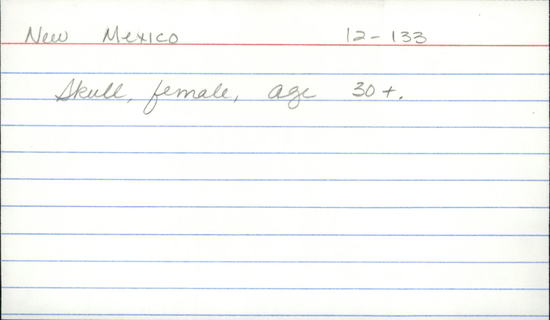 New Mexico 12-133
Skull, female, age 30+.